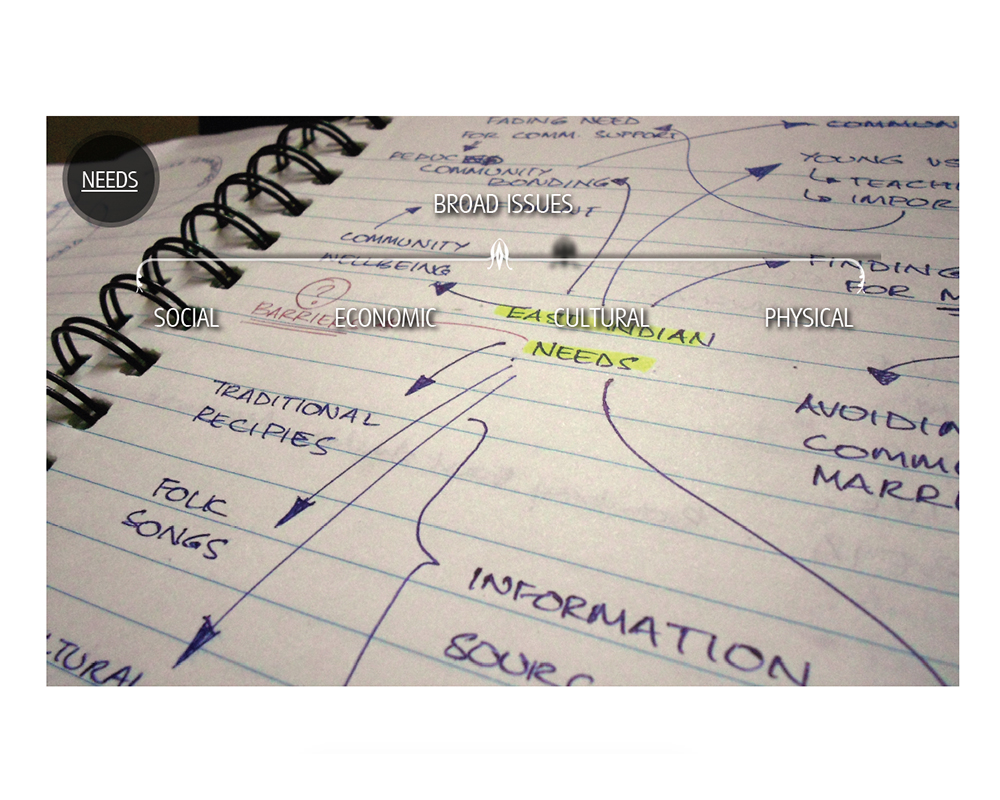 NEEDS
BROAD ISSUES
SOCIAL
ECONOMIC
CULTURAL
PHYSICAL
FADING NEED
FOR COMM. SUPPORT
REDUCED
COMMUNITY
BONDING
COMMUN
YOUNG
TEACHI
IMPOR
COMMUNITY
WELLBEING
FINDING
FOR M
?
BARRIER
EAST INDIAN
NEEDS
TRADITIONAL
RECIPIES
AVOIDIN
COMMU
MARRI
FOLK
SONGS
INFORMATION
SOURC
LTURAL